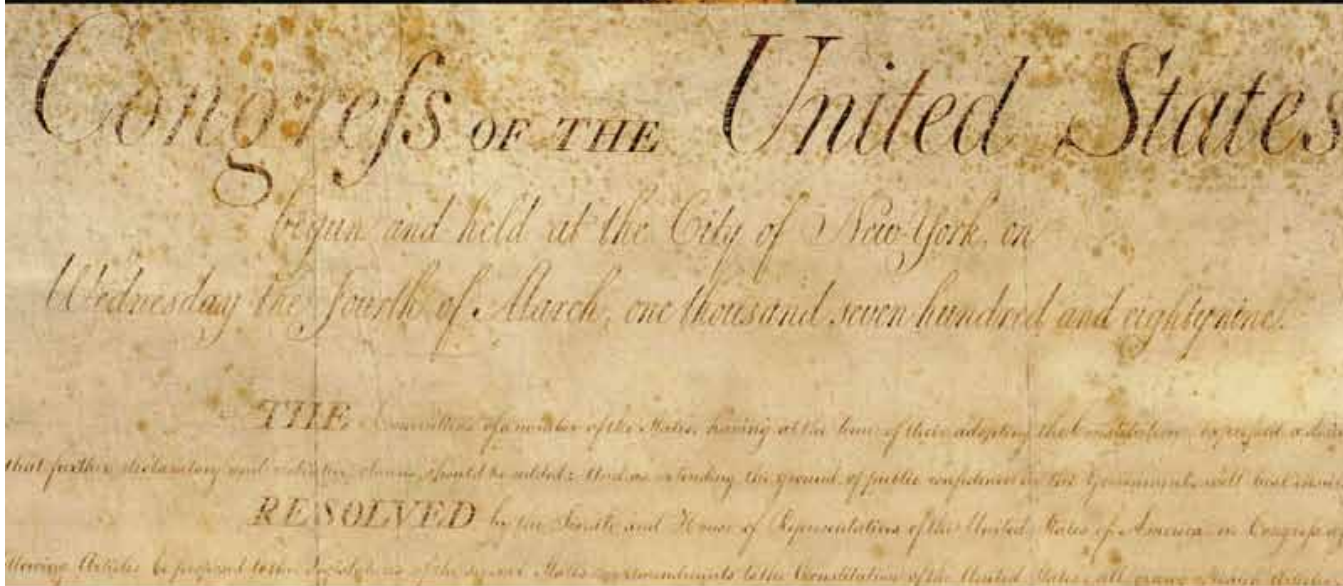 Congreſs OF THE United States
begun and held at the City of New-York, on
Wednesday the fourth of March, one thousand seven hundred and eighty nine.
THE Conventions of a number of the States, having at the time of their adopting the Constitution, expressed a
that further declaratory and restrictive clauses should be added: And as extending the ground of public confidence in the Government, will best
RESOLVED by the Senate and House of Representatives of the United States of America, in Congreſs
Articles be proposed to the Legislatures of the several States, as amendments to the Constitution of the United States,